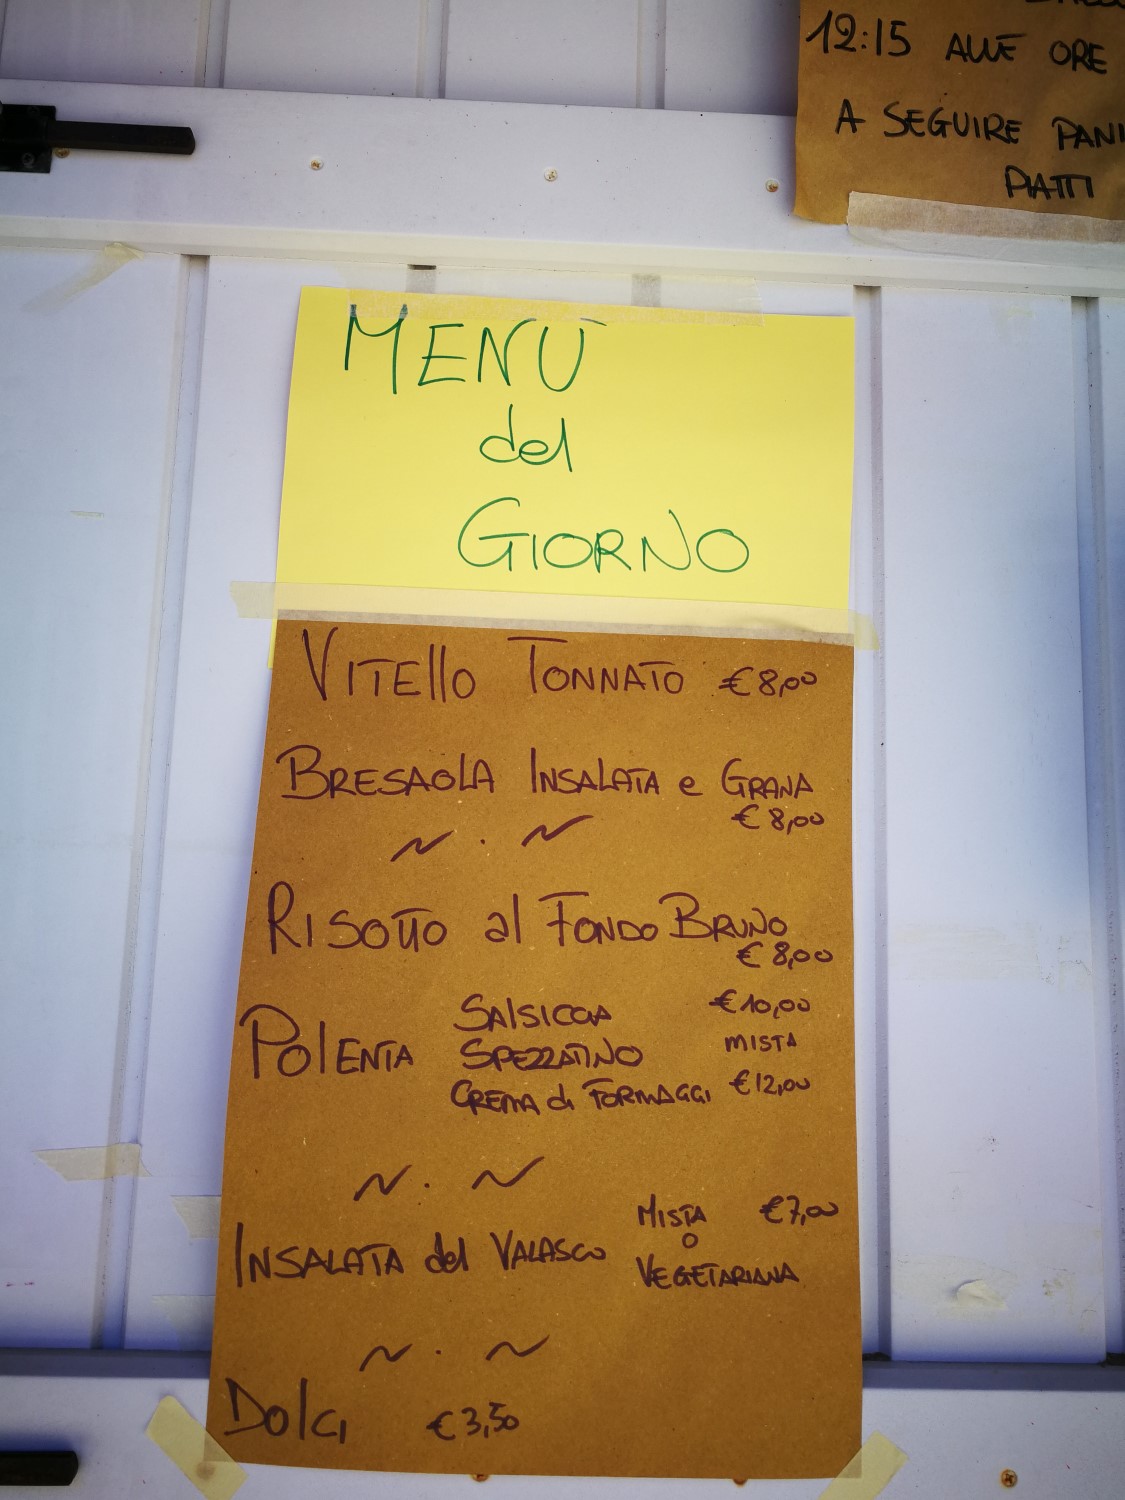 12:15 ALLE ORE
A SEGUIRE PANI
PIATTI
MENÙ
del
GIORNO
VITEllO TONNATO €8,00
BRESAOLA INSALATA e GRANA
€8,00
RISOTTO al FONDO BRUNO
€8,00
SAlSICCIA €10,00
POlENTA SPEZZATINO MISTA
CREMA di FORMAGGI €12,00
MISTA €7,00
INSALATA del VALASCO O
VEGETARIANA
DOlCI €3,50